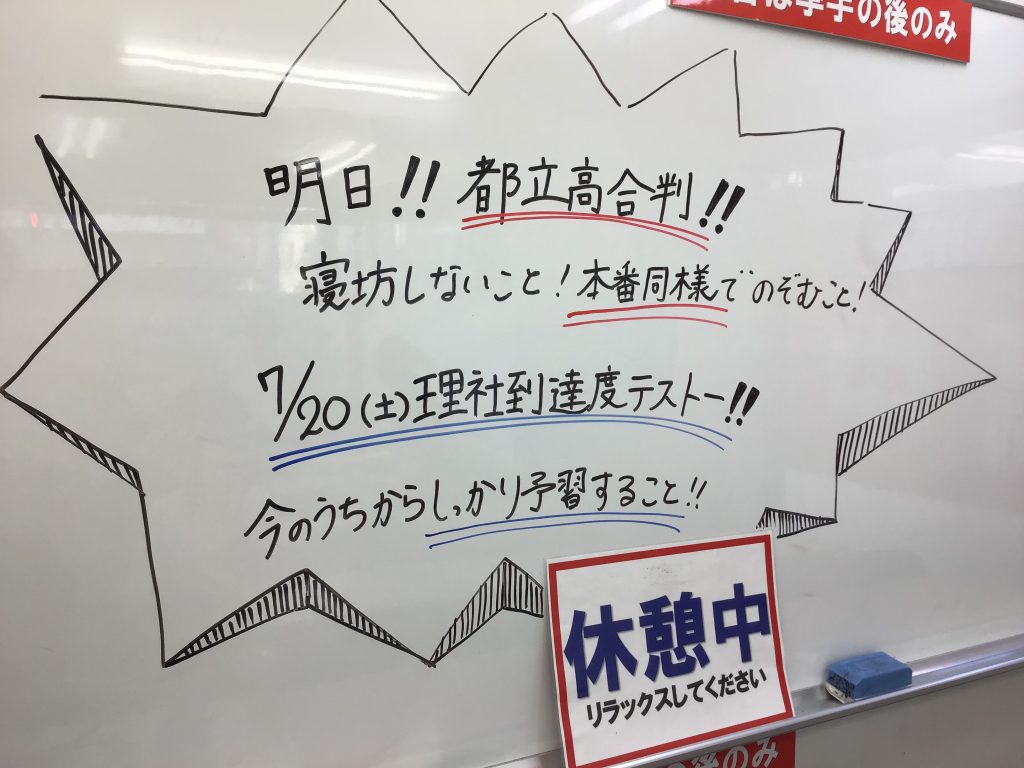 は挙手の後のみ
明日!! 都立高合判!!
寝坊しないこと!本番同様でのぞむこと!
7/20(土)理社到達度テストー!!
今のうちからしっかり予習すること!!
休憩中
リラックスしてください
の後のみ